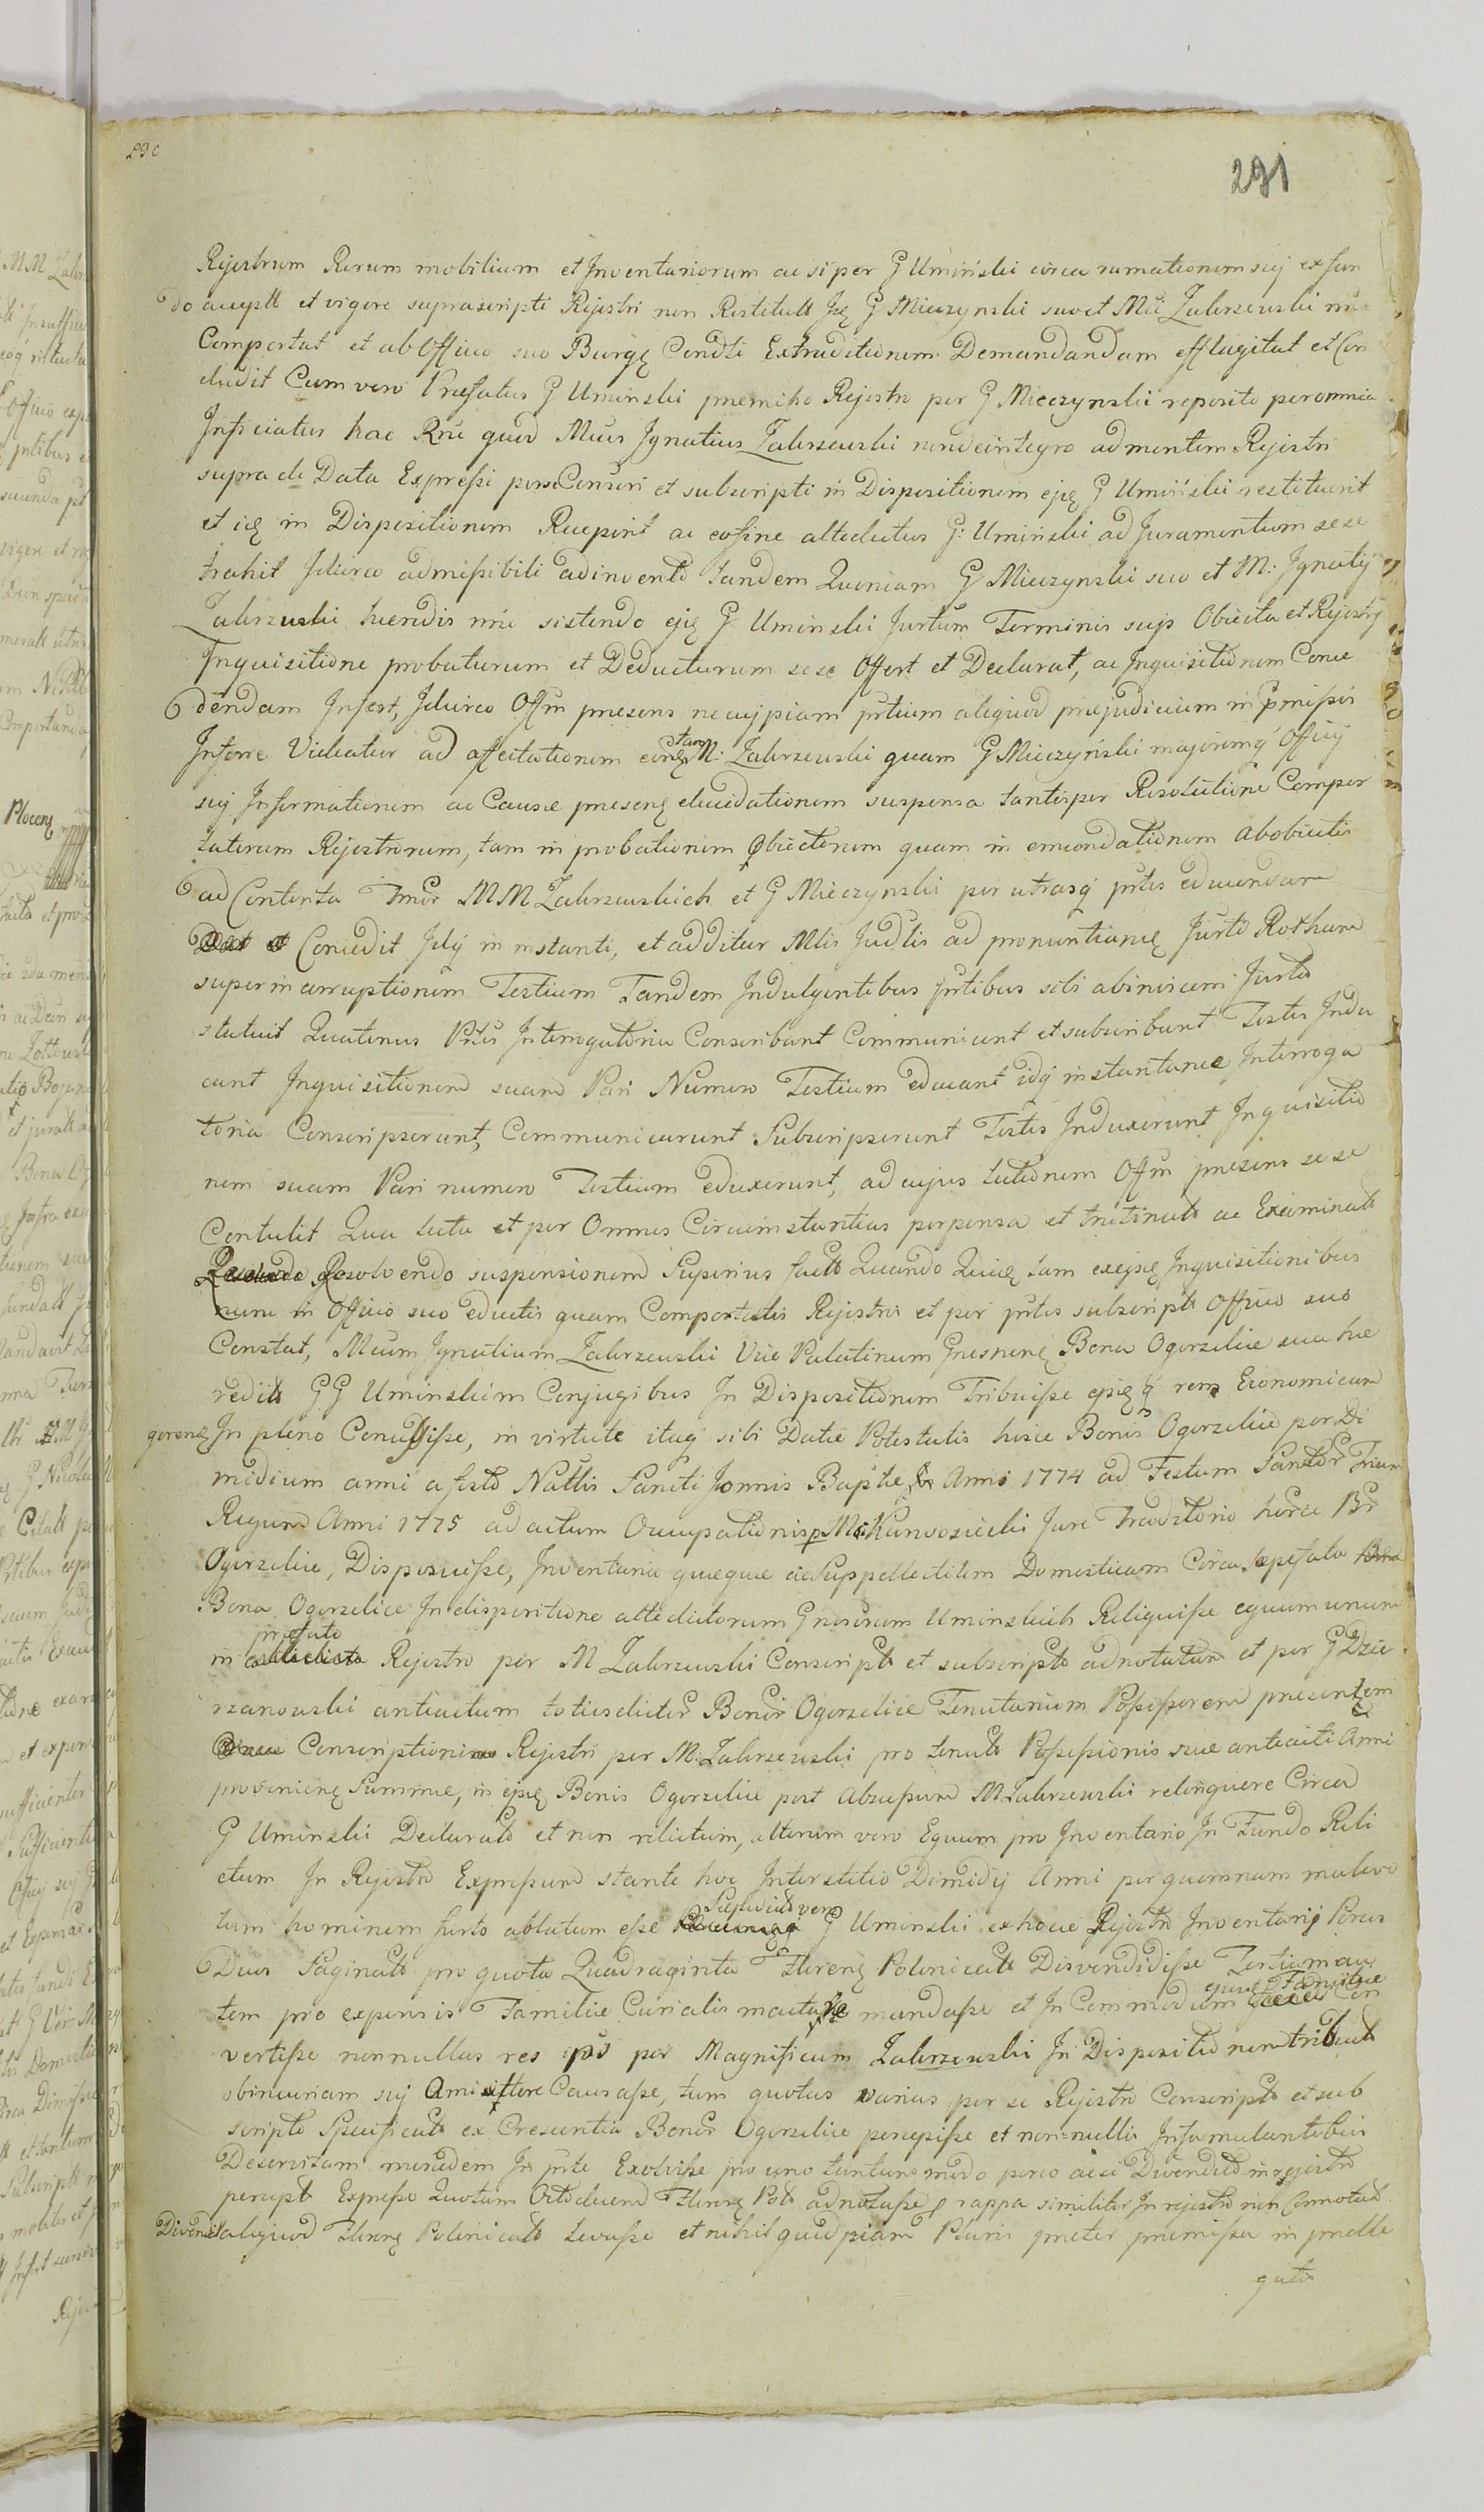 290
291
Rejestrum Rerum mobilium et Inventariorum ac si per G Uminski circa rumationem sej ex fun
do accepti et vigore suprascripti Rejestri non Restituti Jsę G Mieczynski suo et Mci Zakrzewski nrie
Comportat et ab Officio suo Burgę Condti Extraditionem Demandandam efflagitat et Con
cludit Cum vero Praefatus G Uminski praemisso Rejestro per G Mieczynski reposito per omnia
Inficiatur hac Rne quod Mcus Ignatius Zakrzewski non de integro ad mentem Rejestri
supra de Data Expressi per se Conscri et subscripti in Dispositionem ejsę G Uminski restituerit
et is in Dispositionem Receperit ac eo fine altedictus G: Uminski ad Juramentum sese
trahit Idcirco admissibili adinvento tandem Quoniam G Mieczynski suo et M: Ignatij
Zakrzewski heredis nrie sistendo ejsę G Uminski Furtum Terminis sujs Obiecta et Rejestrj
Inquisitione probaturum et Deducturum sese Offert et Declarat, ac Inquisitionem Conce
dendam Infert, Idcirco Offm praesens ne cujpiam prtium aliquod praejudicium in praemissis
Inferre Videatur ad affectationem eorę tam M: Zakrzewski quam G Mieczynski majoremq Officij
sej Informationem ac Causae praesenę elucidationem suspensa tantisper Resolutione Compor
tatorum Rejestrorum, tam in probationem Obiectorum quam in emendationem ab obiectis
ad Contenta Tmor MM Zakrzewskich et G Mieczynski per utrasq prtes educendam
Dat et Concedit Idq in instanti, et additur Mlis Judlis ad pronuntianę Jurto Rotham
super incorruptionem Testium Tandem Indulgentibus prtibus sibi ab invicem Jurto
statuit Quatenus Prtes Interrogatoria Conscribant Communicent et subscribant Testes Indu
cant Inquisitionem suam Pari Numero Testium educant idq instantanee Interroga
toria Conscripserunt, Communicarunt Subscripserunt Testes Induxerunt Inquisitio
nem suam Pari numero Testium eduxerunt, ad cujus lectionem Offm praesens sese
Contulit Qua lecta et per Omnes Circumstantias perpensa et trutinata ac Examinata
Resolvendo suspensionem Superius facto Quando Quidę tam ex ejsę Inquisitionibus
nunc in Officio suo eductis quam Comportatis Rejestris et per prtes subscripti Officio suo
Constat, Mcum Ignatium Zakrzewski Vice Palatinum Gnesnenę Bona Ogorzelice sua hae
redita GG Uminskim Conjugibus In Dispositionem Tribuisse ejsęq rem Economicam
gerenę In pleno Concessisse, in virtute itaq sibi Datae Potestatis hisce Bonis Ogorzelice per Di
midium anni a festo Natlis Sancti Joannis Baptae Anni 1774 ad Festum Sanctor Trium
Regum Anni 1775 ad actum Occupationis p M: Karwosiecki Jure Traditorio horce Br
Ogorzelice, Disposuisse, Inventaria quaeque ac Suppellectilem Domesticam Circa saepefata
Bona Ogorzelice In dispositione altedictorum Gnosorum Uminskich Reliquisse equum unum
in praefato Rejestro per M Zakrzewski Conscripto et subscripto adnotatum et per G Dzie
rzanowski anteactum toties dictor Bonor Ogorzelice Tenutarium Possessorem praesentem
Conscriptionis Rejestri per M: Zakrzewski pro tenuto Possessionis suae anteacti Anni
provenienę Summae, in ejsę Bonis Ogorzelice post Abscessum M Zakrzewski relinquere Circa
G Uminski Declarato et non relictum, alterum vero Equum pro Inventario In Fundo Reli
ctum In Rejestro Expressum stante hoc Interstitio Dimidij Anni per quemnam malevo
lum hominem furto ablatum esse Praedictos vero G Uminski ex hocce Rejestro Inventarij Porcos
Duos Saginato pro quota Quadraginta Florenę Polonicalo Disvendidisse Tertium au
tem pro expensis Familiae Curialis mactare mandasse et In Commodum ejusd Familiae Con
vertisse nonnullas res ips per Magnificum Zakrzewski In Dispositionem tributo
ob incuriam sej Amissere Causasse, tum quotas varias per se Rejestro Conscripto et sub
scripto Specificato ex Crescentia Bonor Ogorzelice percepisse et non nullis In famulantibus
Deservitam mercedem In prte Exolvisse pro uno tantummodo porco acsi Divendito in rejestro
percepto Expresse Quotam Octodecem Florenę Pol adnotasse p rappa similiter In rejestro non Connotat
Divendito aliquod Florenę Polonicalo levasse et nihil quidpiam Pluris praeter praemissa in praelle
gato